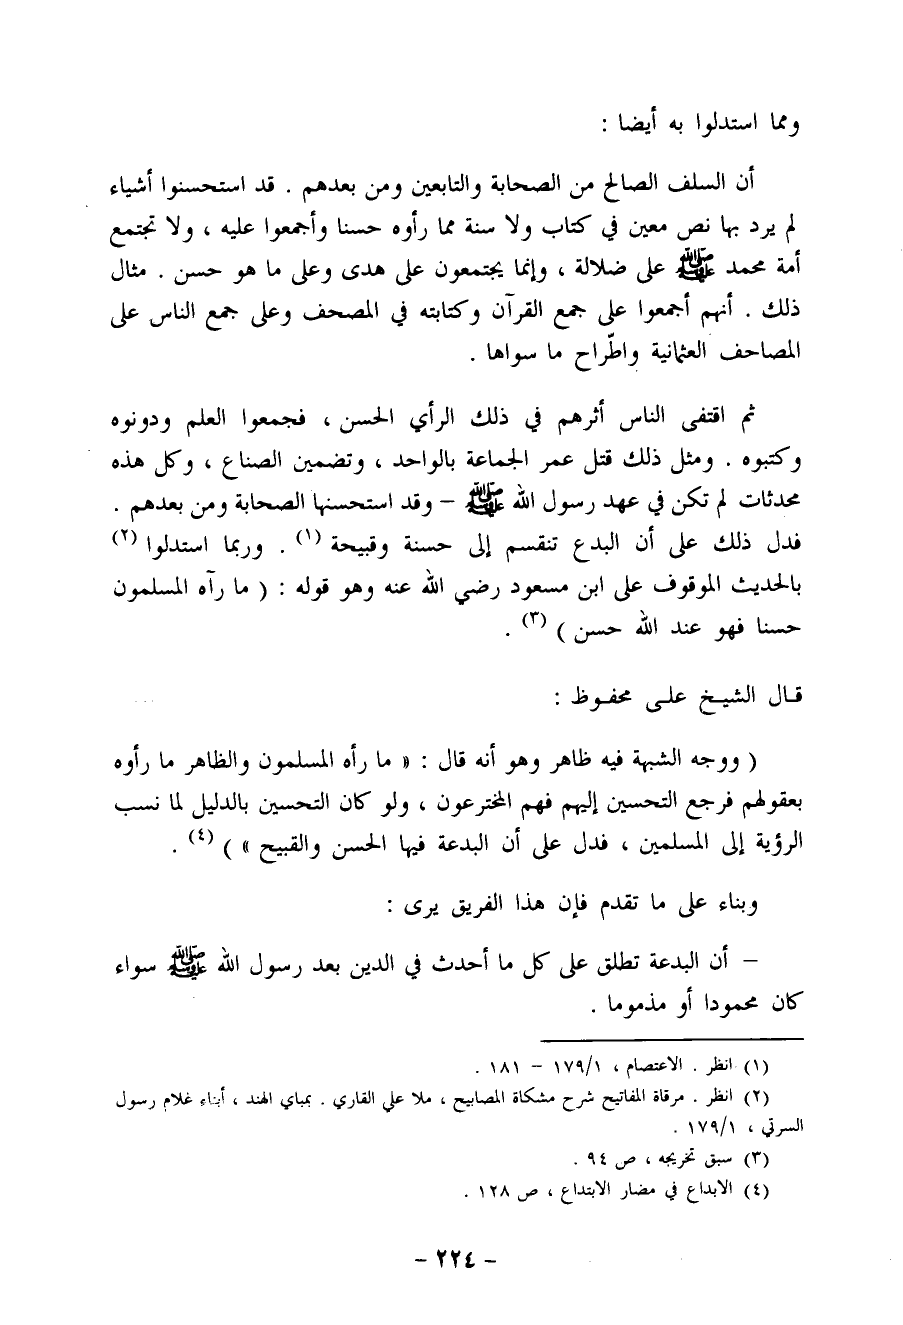 ومما استدلوا به أيضا :
أن السلف الصالح من الصحابة والتابعين ومن بعدهم . قد استحسنوا أشياء
لم يرد بها نص معين في كتاب ولا سنة مما رأوه حسنا وأجمعوا عليه ، ولا تجتمع
أمة محمد ﷺ على ضلالة ، وإنما يجتمعون على هدى وعلى ما هو حسن . مثال
ذلك . أنهم أجمعوا على جمع القرآن وكتابته في المصحف وعلى جمع الناس على
المصاحف العثمانية واطّراح ما سواها .
ثم اقتفى الناس أثرهم في ذلك الرأي الحسن ، فجمعوا العلم ودونوه
وكتبوه . ومثل ذلك قتل عمر الجماعة بالواحد ، وتضمين الصناع ، وكل هذه
محدثات لم تكن في عهد رسول الله ﷺ – وقد استحسنها الصحابة ومن بعدهم .
فدل ذلك على أن البدع تنقسم إلى حسنة وقبيحة (١) . وربما استدلوا (٢)
بالحديث الموقوف على ابن مسعود رضي الله عنه وهو قوله : ( ما رآه المسلمون
حسنا فهو عند الله حسن ) (٣) .
قال الشيخ علي محفوظ :
( ووجه الشبهة فيه ظاهر وهو أنه قال : « ما رأه المسلمون والظاهر ما رأوه
بعقولهم فرجع التحسين إليهم فهم المخترعون ، ولو كان التحسين بالدليل لما نسب
الرؤية إلى المسلمين ، فدل على أن البدعة فيها الحسن والقبيح » ) (٤) .
وبناء على ما تقدم فإن هذا الفريق يرى :
– أن البدعة تطلق على كل ما أحدث في الدين بعد رسول الله ﷺ سواء
كان محمودا أو مذموما .
(١) انظر . الاعتصام ، ١٧٩/١ – ١٨١ .
(٢) انظر . مرقاة المفاتيح شرح مشكاة المصابيح ، ملا علي القاري . بمباي الهند ، أبناء غلام رسول
السرتي ، ١٧٩/١ .
(٣) سبق تخريجه ، ص ٩٤ .
(٤) الابداع في مضار الابتداع ، ص ١٢٨ .
– ٢٢٤ –